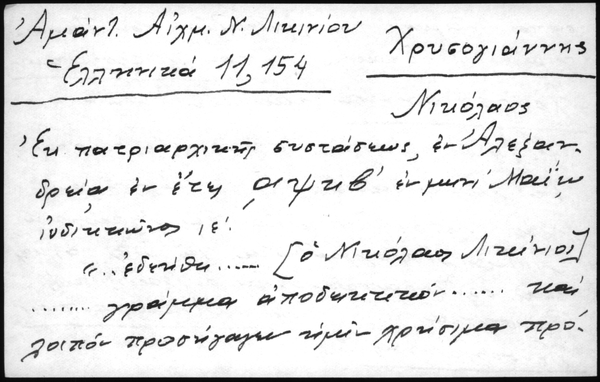 Ἀμάντ. Αἰχμ. Ν. Λικινίου
Ἑλληνικά 11, 154
Χρυσογιάννης
Νικόλαος
Ἐκ πατριαρχικῆς συστάσεως, ἐν Ἀλεξαν-
δρείᾳ ἐν ἔτει ͵αψκβ΄ ἐν μηνί Μαΐῳ
ἰνδικτιῶνος ιε΄.
«..ἐδεήθη...... [ὁ Νικόλαος Λικίνιος]
....... γράμμα ἀποδεικτικόν...... καί
λοιπόν προσήγαγεν ἡμῖν χρήσιμα πρό-